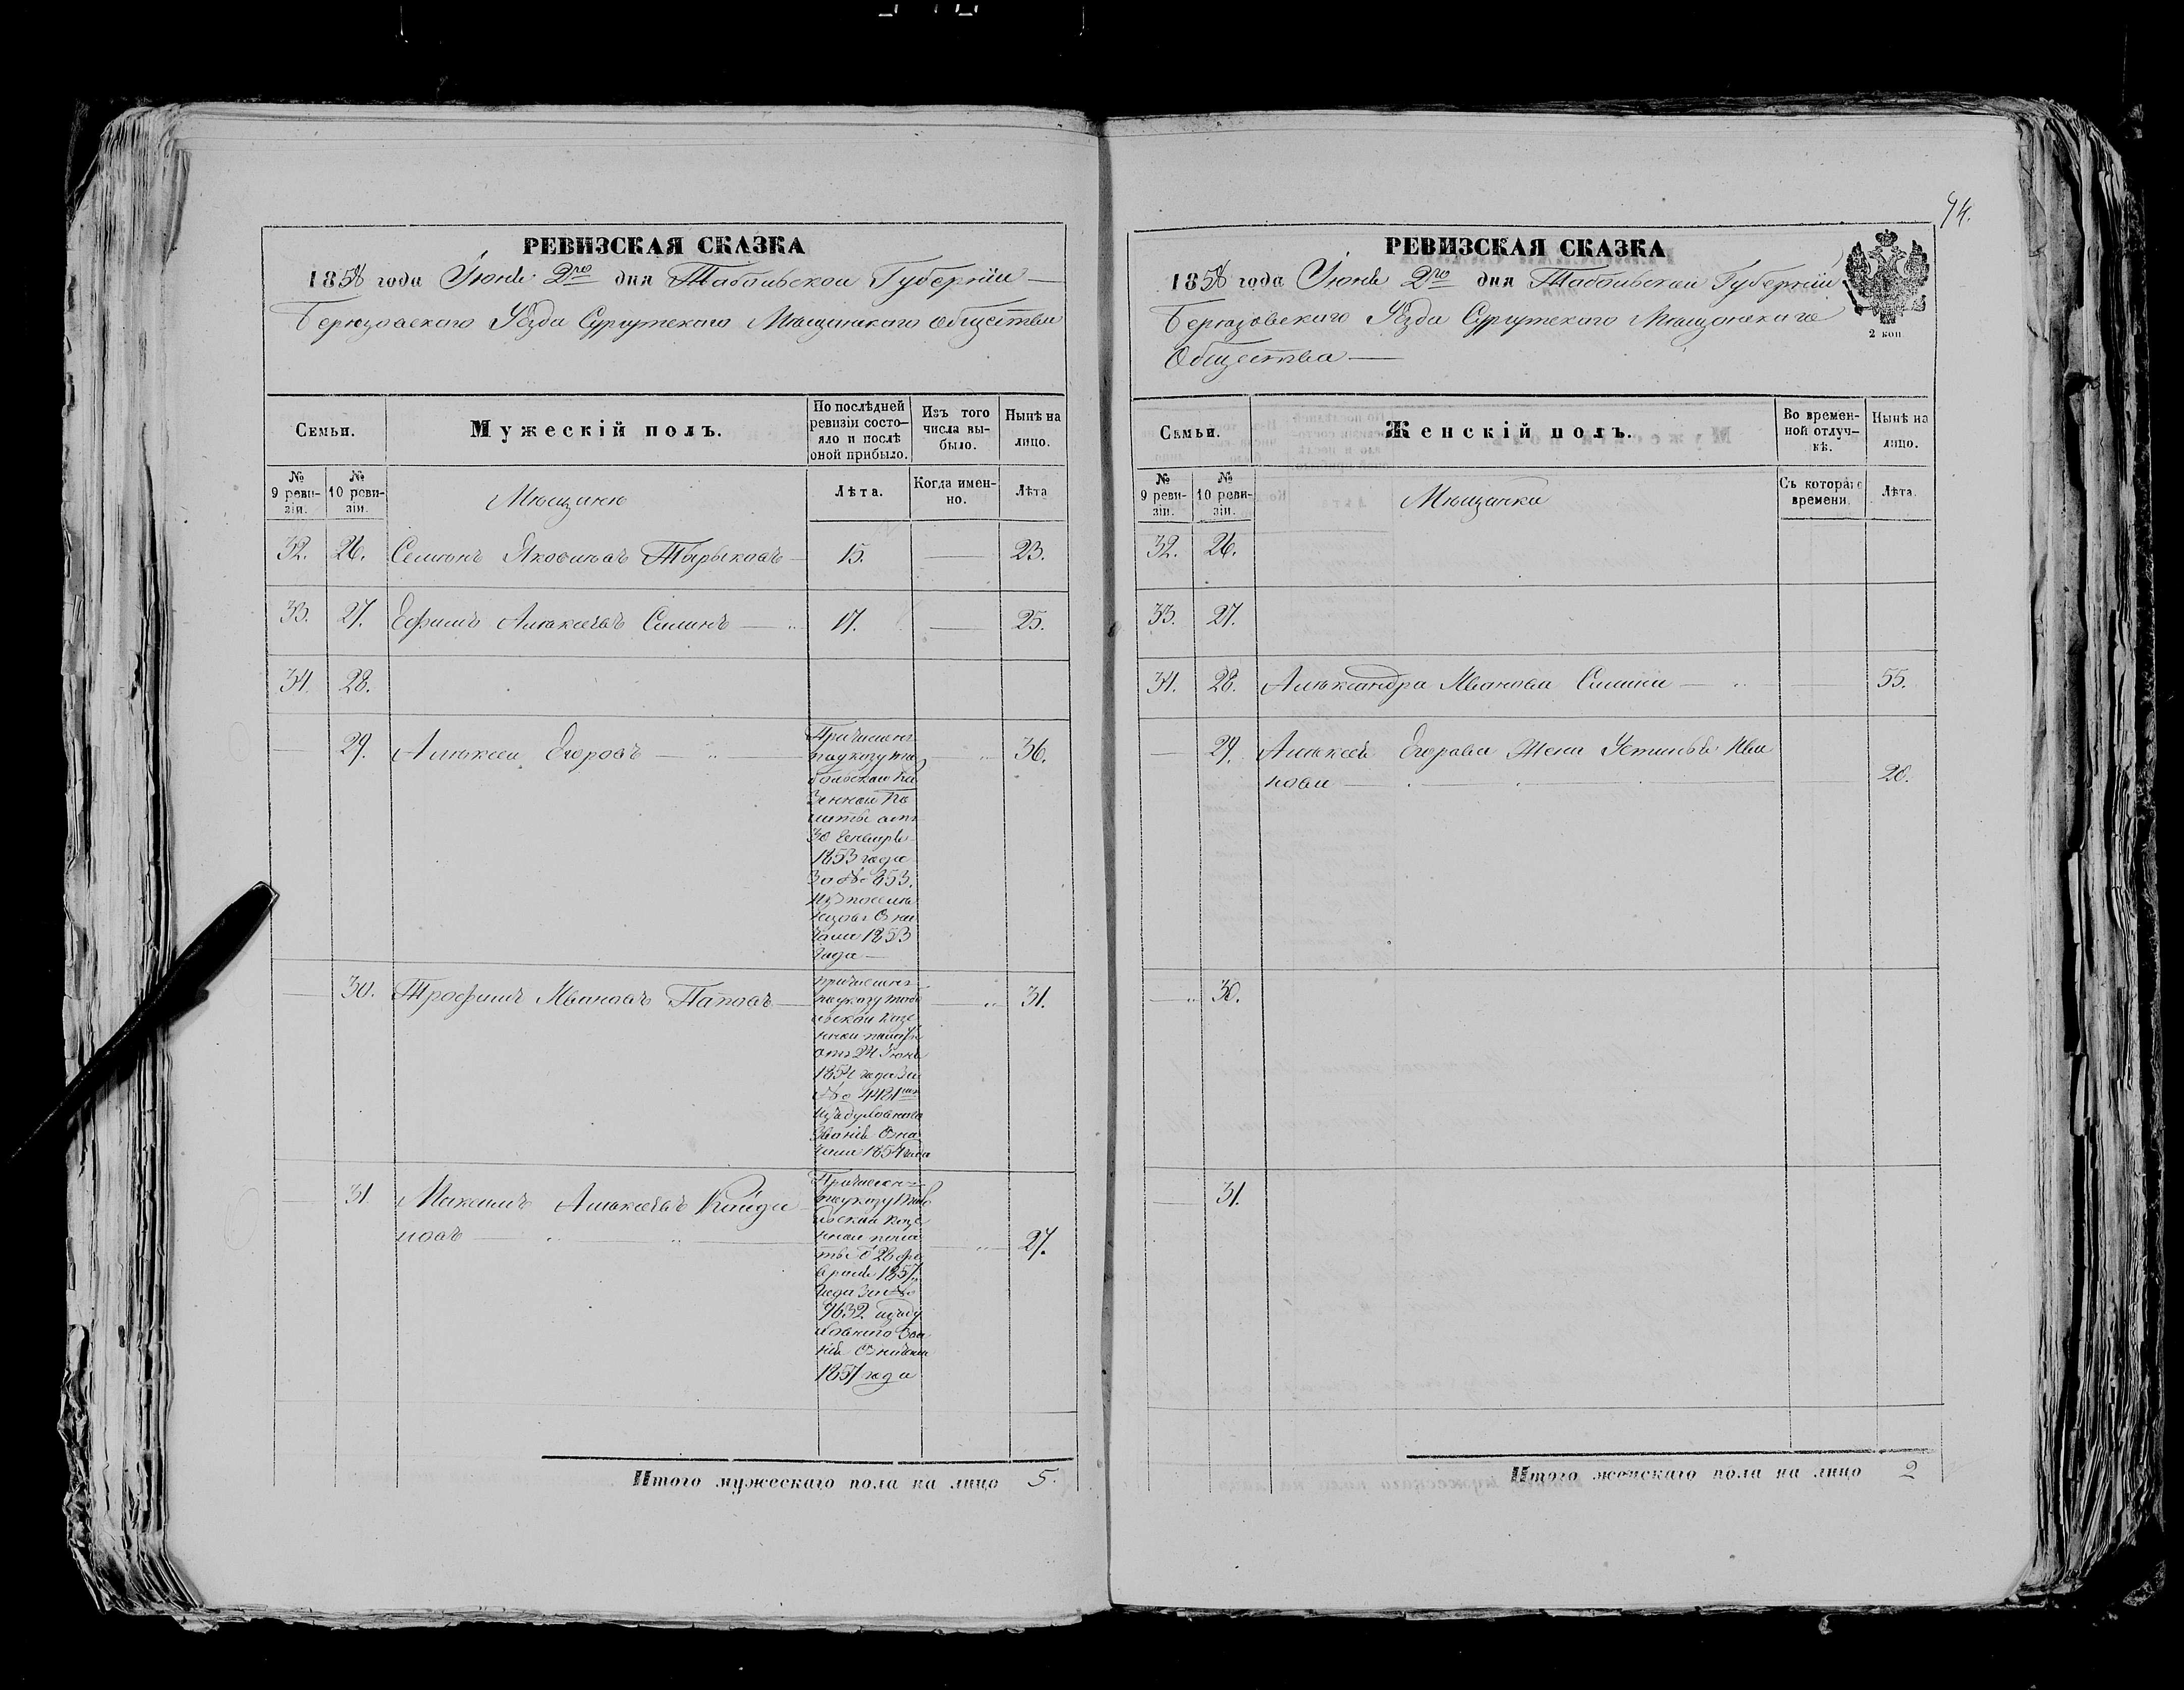 94.
РЕВИЗСКАЯ СКАЗКА
1858 года Іюня 2го дня Тобольской Губерніи
Березовскаго Уѣзда Сургутскаго Мѣщанскаго Общества
Семьи.
Мужескій полъ.
По послѣдней
ревизіи состо-
яло и послѣ
оной прибыло.
Изъ того
числа вы-
было.
Нынѣ на
лицо.
№
9 реви-
зіи.
№
10 реви-
зіи.
Мѣщане
Лѣта.
Когда имен-
но.
Лѣта
32. 26. Семенъ Яковлевъ Тырыковъ 15. 23.
33. 27. Ефимъ Алексѣевъ Силинъ 17. 25.
34. 28.
29. Алексей Егоровъ 36.
Причисленъ
по указу то
больской ка
зенной па
латы отъ
30 Генваря
1853 года
за № 853.
изъ поселе
нцовъ с на
чала 1853
года
30. Трофимъ Ивановъ Поповъ 31.
причисленъ
по указу тобо
льской казе
нной палаты
отъ 24 Іюня
1854 года за
№ 4481
изъ духовнаго
званія с на
чала 1854 года
31 Максимъ Алексѣевъ Кайда
ловъ 27.
Причислен
по указу тобо
льской казе
нной пала
ты 26 фе
враля 1857
года за №
1632 изъ ду
ховнаго зва
нія с начала
1857 года
Итого мужескаго пола на лицо 5.
РЕВИЗСКАЯ СКАЗКА
1858 года Іюня 2го дня Тобольской Губерніи
Березовскаго Уѣзда Сургутскаго Мѣщанскаго
Общества
2 коп
Семьи.
Женскій полъ.
Во времен-
ной отлуч-
кѣ.
Нынѣ на
лицо.
№
9 реви-
зіи.
№
10 реви-
зіи.
Мѣщанки
Съ котораго
времени.
Лѣта.
32. 26.
33. 27.
34. 28. Александра Иванова Силина 55.
29. Алексѣя Егорова Жена Устинья Ива
нова 20.
30.
31.
Итого женскаго пола на лицо 2